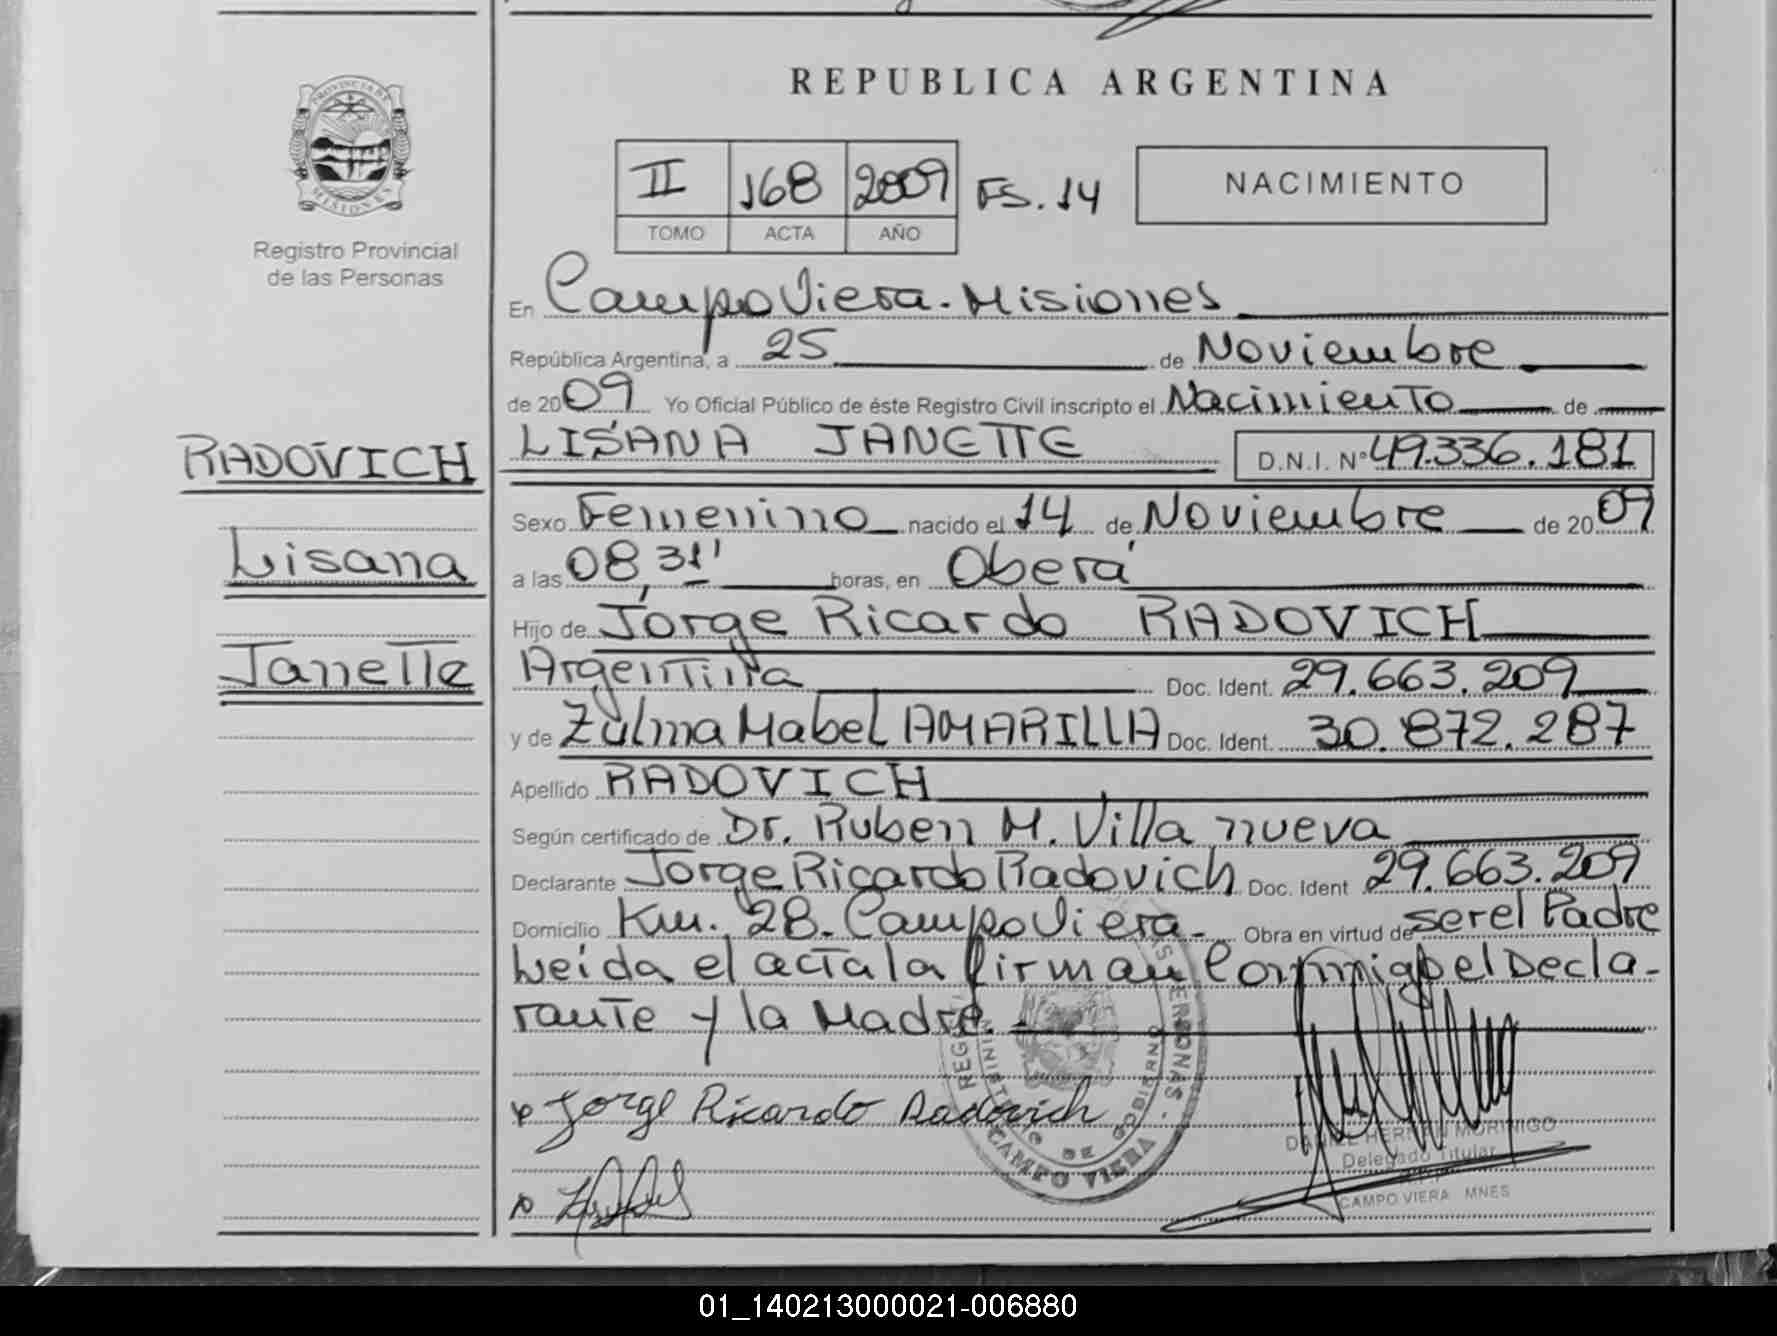 REPUBLICA ARGENTINA
PROVINCIA DE
MISIONES
Registro Provincial
de las Personas
II 168 2009 FS. 14
TOMO ACTA AÑO
NACIMIENTO
En Campo Viera - Misiones
República Argentina, a 25 de Noviembre
de 2009 Yo Oficial Público de éste Registro Civil inscripto el Nacimiento de
RADOVICH
LISANA JANETTE D.N.I. Nº 49.336.181
Lisana
Janette
Sexo Femenino nacido el 14 de Noviembre de 2009
a las 08,31' horas, en Oberá
Hijo de Jorge Ricardo RADOVICH
Argentina Doc. Ident. 29.663.209
y de Zulma Mabel AMARILLA Doc. Ident. 30.872.287
Apellido RADOVICH
Según certificado de Dr. Ruben M. Villanueva
Declarante Jorge Ricardo Radovich Doc. Ident 29.663.209
Domicilio Km. 28 - Campo Viera - Obra en virtud de ser el Padre
Leída el acta la firman Conmigo el Decla-
rante y la Madre. -
Jorge Ricardo Radovich
MINISTERIO DE GOBIERNO
CAMPO VIERA
DANIEL HERNAN MORINIGO
Delegado Titular
CAMPO VIERA MNES
01_140213000021-006880